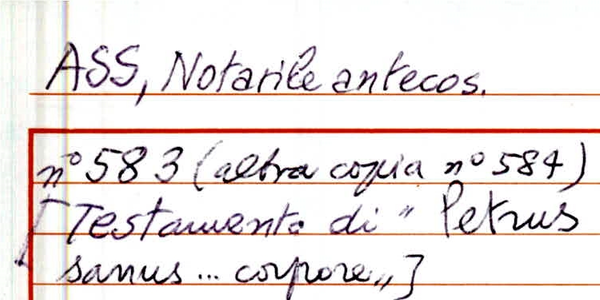 ASS, Notarile antecos.
n° 583 (altra copia n° 584)
[Testamento di "Petrus
sanus... corpore„]